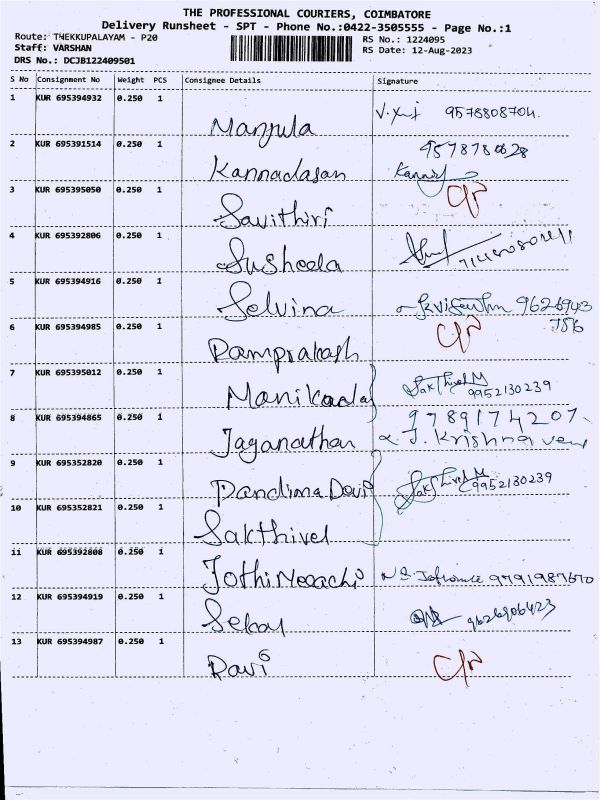 THE PROFESSIONAL COURIERS, COIMBATORE
Delivery Runsheet - SPT - Phone No.:0422-3505555 - Page No.:1
Route: THEKKUPALAYAM - P20
RS No.: 1224095
Staff: VARSHAN
RS Date: 12-Aug-2023
DRS No.: DCJB122409501
S No Consignment No Weight PCS Consignee Details Signature
1 KUR 695394932 0.250 1 Manjula 9578808704.
2 KUR 695391514 0.250 1 Kannadasan
3 KUR 695395050 0.250 1 Savithiri
4 KUR 695392806 0.250 1 Susheela
5 KUR 695394916 0.250 1 Selvina 9626943
786
6 KUR 695394985 0.250 1 Ramprakash
7 KUR 695395012 0.250 1 Manikanda Sakthivel M
9952130239
8 KUR 695394865 0.250 1 Jaganathan 9789174207
J. Krishna veni
9 KUR 695352820 0.250 1 Pandima Devi Sakthivel M
9952130239
10 KUR 695352821 0.250 1 Sakthivel
11 KUR 695392808 0.250 1 Jothi Meenachi 9791987670
12 KUR 695394919 0.250 1 Sekar 9626906423
13 KUR 695394987 0.250 1 Ravi